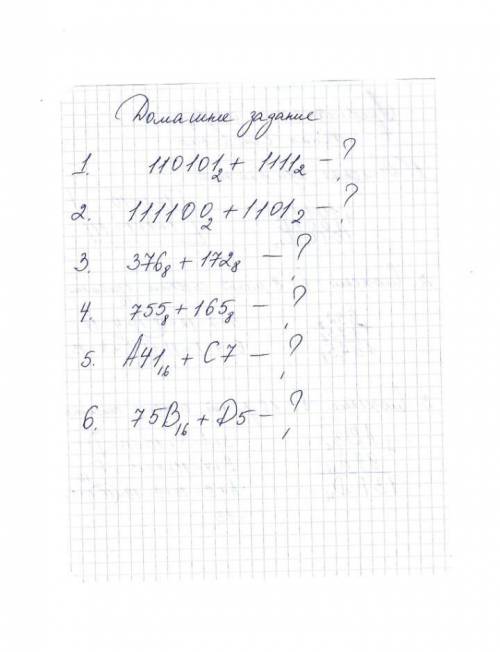 Домашнее задание
1. 110101₂ + 1111₂ — ?
2. 111100₂ + 1101₂ — ?
3. 376₈ + 172₈ — ?
4. 755₈ + 165₈ — ?
5. A41₁₆ + C7 — ?
6. 75B₁₆ + D5 — ?